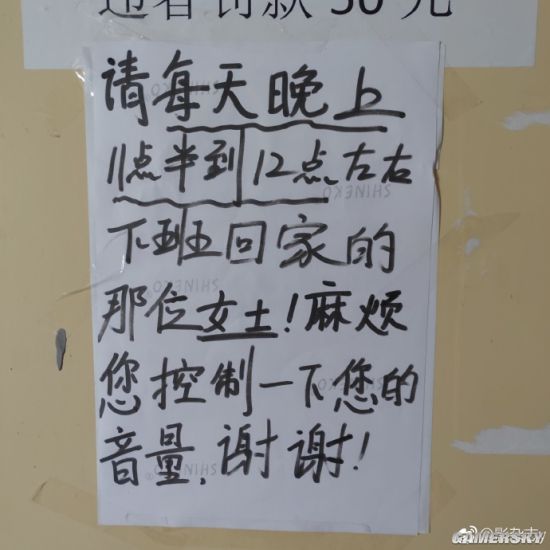 违者罚款50元
请每天晚上
11点半到12点左右
下班回家的
那位女士!麻烦
您控制一下您的
音量,谢谢!
SHINEKO
SHINEKO
SHINEKO
@影杂志
GAMERSKY